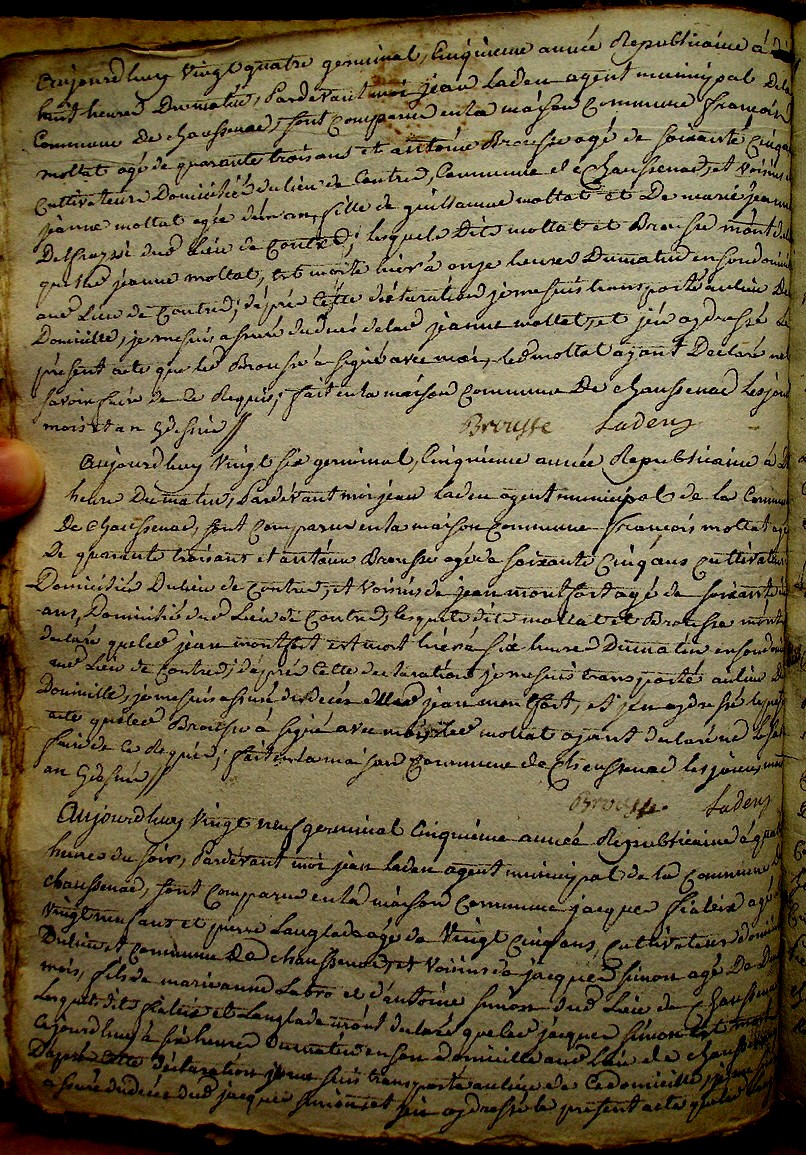 Aujourd huy vingt quatre germinal, Cinquieme année Republicaine à
huit heures Du matin, Pardevant moi jean laden agent municipal De la
Commune De chaussenac, sont Comparus en la maison Commune francois
mottat agé de quarante trois ans et antoine Brousse agé de soixante Cinq ans
Cultivateurs Domiciliés du lieu de Contres, Commune de Chaussenac, et voisins
jeanne mottat agée d'un an, fille de guillaume mottat et De marie jeanne
du lieu de Contres; lesquels Dits mottat et Brousse m'ont
que lad jeanne mottat, est morte hier à onze heures Du matin en son
aud Lieu de Contres; d'après Cette déclaration je me suis transporté au lieu De
Domicille, je me suis assuré du deces de lad jeanne mottat, et j'en ay dressé Le
présent acte que led Brousse à signé avec moi, led mottat ayant Déclaré ne
savoir faire de Ce Requis; fait en la maison Commune De chaussenac les jour
mois et an
Brousse Laden
Aujourd huy vingt six germinal, Cinquieme année Republicaine à
heure Du matin, Pardevant moi jean laden agent municipal de la Commune
De chaussenac, sont Comparus en la maison Commune francois mottat agé
De quarante trois ans et antoine Brousse agé de soixante Cinq ans Cultivateurs
Domiciliés Du lieu de Contres, et voisins de jean montfort agé de soixante
ans, Domicilié dud Lieu de Contres, lesquels dits mottat et Brousse m'ont
declaré que led jean montfort est mort hier à six heures Du matin en son
aud Lieu de Contres; d'après Cette declaration je me suis transporté au lieu De
Domicille, je me suis assuré du deces dud jean montfort, et j'en ay dressé le
acte que led Brousse à signé avec moi, led mottat ayant declaré ne
faire de Ce Requis; fait en la maison Commune de Chaussenac les jour, mois
an
Brousse Laden
Aujourd huy vingt neuf germinal Cinquième année Republicaine à
heures du soir, Pardevant moi jean laden agent municipal de la Commune
chaussenac, sont Comparus en la maison Commune jacques agé
vingt neuf ans et pierre Langlade agé de vingt Cinq ans, Cultivateurs
Du lieu et Commune De chaussenac, et voisins à jacques simon agé De
mois, fils de marie anne Labro et d'antoine simon dud Lieu de Chaussenac
Lesquels dits et Langlade m'ont declaré que led jacques simon est mort
aujourd huy à six heures du matin en son domicille aud Lieu de chaussenac
D'après Cette déclaration je me suis transporté au lieu de Ce domicille,
assuré du deces dud jacques simon, et j'en ay dressé le présent acte que led